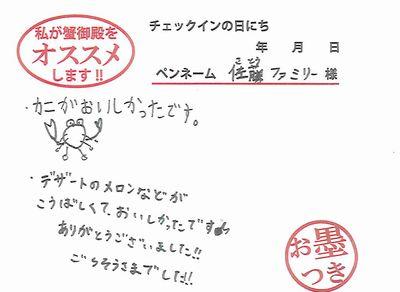 私が蟹御殿を
オススメ
します!!
チェックインの日にち
年 月 日
さとう
ペンネーム 佐藤ファミリー 様
・カニがおいしかったです。
・デザートのメロンなどが
こうばしくて、おいしかったです
ありがとうございました!!
ごちそうさまでした!!
お墨
つき